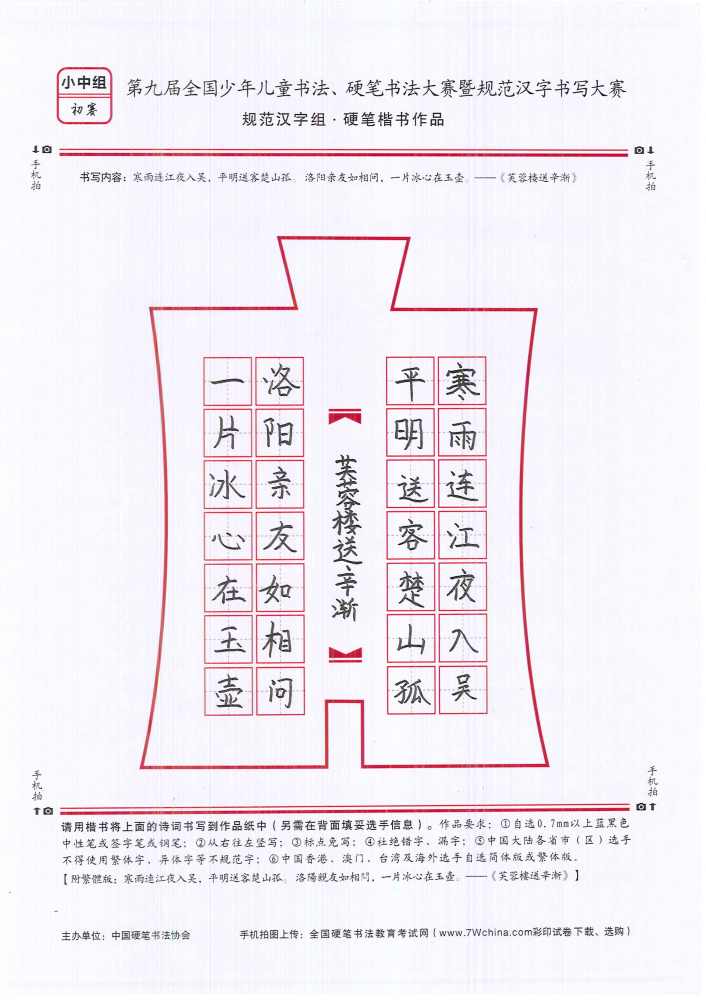 小中组
初赛
第九届全国少年儿童书法、硬笔书法大赛暨规范汉字书写大赛
规范汉字组·硬笔楷书作品
手机拍
手机拍
书写内容：寒雨连江夜入吴，平明送客楚山孤。洛阳亲友如相问，一片冰心在玉壶。——《芙蓉楼送辛渐》
寒雨连江夜入吴
平明送客楚山孤
芙蓉楼送辛渐
洛阳亲友如相问
一片冰心在玉壶
手机拍
手机拍
请用楷书将上面的诗词书写到作品纸中（另需在背面填妥选手信息）。作品要求：①自选0.7mm以上蓝黑色
中性笔或签字笔或钢笔；②从右往左竖写；③标点免写；④杜绝错字、漏字；⑤中国大陆各省市（区）选手
不得使用繁体字、异体字等不规范字；⑥中国香港、澳门、台湾及海外选手自选简体版或繁体版。
【附繁體版：寒雨連江夜入吳，平明送客楚山孤。洛陽親友如相問，一片冰心在玉壺。——《芙蓉樓送辛漸》】
主办单位：中国硬笔书法协会
手机拍图上传：全国硬笔书法教育考试网（www.7Wchina.com彩印试卷下载、选购）